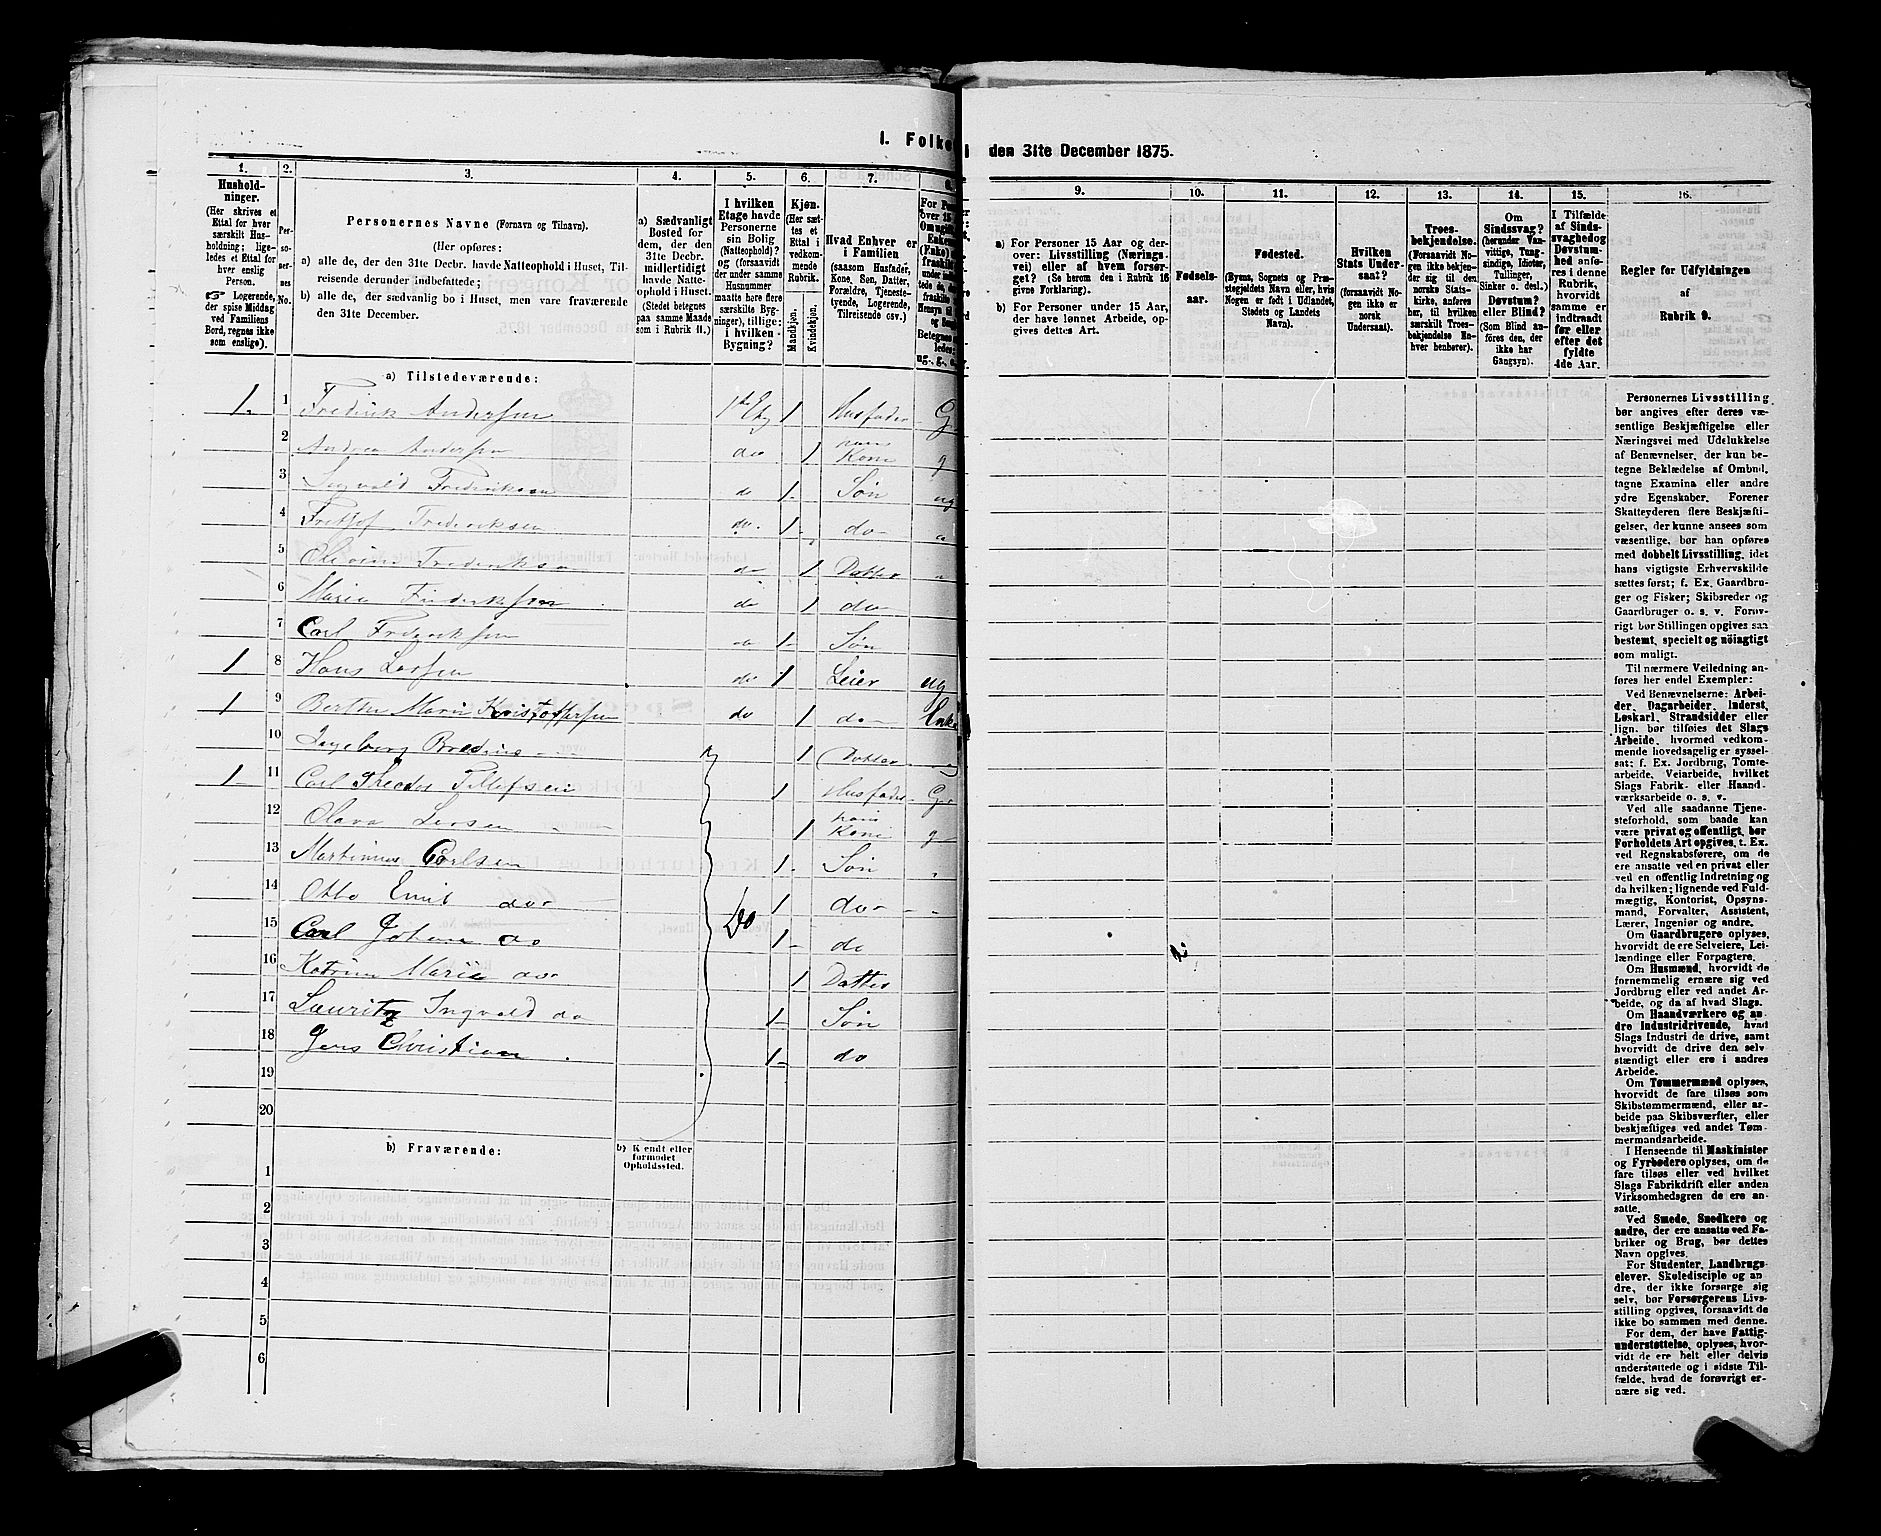 I. Folke
den 31te December 1875.
1.
Hushold-
ninger.
(Her skrives et
Ettal for hver
særskilt Hus-
holdning; lige-
ledes et Ettal for
hver enslig
Person.
☞ Logerende,
der spise Middag
ved Familiens
Bord, regnes ikke
som enslige).
2.
Per-
so-
ner-
nes
No.
3.
Personernes Navne (Fornavn og Tilnavn).
(Her opføres:
a) alle de, der den 31te Decbr. havde Natteophold i Huset, Til-
reisende derunder indbefattede;
b) alle de, der sædvanlig bo i Huset, men vare fraværende
den 31te December.
4.
a) Sædvanligt
Bosted for
dem, der den
31te Decbr.
midlertidigt
havde Natte-
ophold i Huset.
(Stedet betegnes
paa samme Maade
som i Rubrik 11.)
5.
I hvilken
Etage havde
Personerne
sin Bolig
(Natteophold)?
og (forsaavidt
der under samme
Husnummer
maatte høre flere
særskilte Byg-
ninger), tillige:
i hvilken
Bygning?
6.
Kjøn.
(Her sæt-
tes et
Ettal i
vedkom-
mende
Rubrik.
Mandkjøn.
Kvindekjøn.
7.
Hvad Enhver er
i Familien
(saasom Husfader,
Kone, Søn, Datter,
Forældre, Tjeneste-
tyende, Logerende,
Tilreisende csv.)
9.
a) For Personer 15 Aar og der-
over: Livsstilling (Nærings-
vei) eller af hvem forsør-
get? (Se herom den i Rubrik 16
givne Forklaring).
b) For Personer under 15 Aar,
der have lønnet Arbeide, op-
gives dettes Art.
10.
Fødsels-
aar.
11.
Fødested.
(Byens, Sognets og Præ-
stegjeldets Navn eller, hvis
Nogen er født i Udlandet,
Stedets og Landets
Navn).
12.
Hvilken
Stats Under-
saat?
(forsaavidt No-
gen ikke er
norsk
Undersaat).
13.
Troes-
bekjendelse.
(Forsaavidt No-
gen ikke bekjen-
der sig til den
norske Stats-
kirke, anføres
her, til hvilken
særskilt Troes-
bekjendelse En-
hver henhører).
14.
Om
Sindssvag?
(herunder Van-
vittige, Tung-
sindige, Idioter,
Tullinger,
Sinker o. desl.)
Døvstum?
eller Blind?
(Som Blind an-
føres den, der
ikke har
Gangsyn).
15.
I Tilfælde
af Sinds-
svaghed og
Døvstum-
hed anfø-
res i denne
Rubrik,
hvorvidt
samme er
indtraadt
før eller
efter det
fyldte
4de Aar.
16.
Regler for Udfyldningen
af
Rubrik 9.
a) Tilstedeværende:
1. 1 Frederik Andersen 1ste Etg 1 Husfader G
2 Andrea Andersen do 1 hans Kone g
3 Sigvald Frederiksen do 1 Søn ug
4 Fridtjof Frederiksen do. 1 do
5 Frederiksen do 1 Datter "
6 Maria Frederiksen do 1 do
7 Carl Frederiksen do 1 Søn
1 8 Hans Larsen do 1 Leier ug
1 9 Berthe Marie Kristoffersen do 1 do Enke
10 Ingeborg 1 Datter
1 11 Carl Theodor Tellefsen 1 Husfader G
12 Olava Larsen 1 hans Kone g
13 Martinius Carlsen 1 Søn "
14 Otto Emil do 1 do "
15 Carl Johan do Do 1 do
16 Katrine Marie do 1 Datter
17 Lauritz Ingvald do 1 Søn
18 Jens Christian 1 do
19
20
b) Fraværende:
b) Kjendt eller
formodet
Opholdssted.
1
2
3
4
5
6
Personernes Livsstilling
bør angives efter deres væ-
sentlige Beskjæftigelse eller
Næringsvei med Udelukkelse
af Benævnelser, der kun be-
tegne Beklædelse af Ombud,
tagne Examina eller andre
ydre Egenskaber. Forener
Skatteyderen flere Beskjæfti-
gelser, der kunne ansees som
væsentlige, bør han opføres
med dobbelt Livsstilling, idet
hans vigtigste Erhvervskilde
sættes først; f. Ex. Gaardbru-
ger og Fisker; Skibsreder og
Gaardbruger o. s. v. Forøv-
rigt bør Stillingen opgives saa
bestemt, specielt og nøiagtigt
som muligt.
Til nærmere Veiledning an-
føres her endel Exempler:
Ved Benævnelserne: Arbei-
der, Dagarbeider, Inderst,
Løskarl, Strandsidder eller
lign. bør tilføies det Slags
Arbeide, hvormed vedkom-
mende hovedsagelig er syssel-
sat; f. Ex. Jordbrug, Tomte-
arbeide, Veiarbeide, hvilket
Slags Fabrik- eller Haand-
værksarbeide o. s. v.
Ved alle saadanne Tjene-
steforhold, som baade kan
være privat og offentligt, bør
Forholdets Art opgives, t. Ex.
ved Regnskabsførere, om de
ere ansatte ved en privat eller
ved en offentlig Indretning og
da hvilken; lignende ved Fuld-
mægtig, Kontorist, Opsyns-
mand, Forvalter, Assistent,
Lærer, Ingeniør og andre.
Om Gaardbrugere oplyses,
hvorvidt de ere Selveiere, Lei-
lændinge eller Forpagtere.
Om Husmænd, hvorvidt de
fornemmelig ernære sig ved
Jordbrug eller ved andet Ar-
beide, og da af hvad Slags.
Om Haandværkere og an-
dre Industridrivende, hvad
Slags Industri de drive, samt
hvorvidt de drive den selv-
stændigt eller ere i andres
Arbeide.
Om Tømmermænd oplyses,
hvorvidt de fare tilsøs som
Skibstømmermænd, eller ar-
beide paa Skibsværfter, eller
beskjæftiges ved andet Tøm-
mermandsarbeide.
I Henseende til Maskinister
og Fyrbødere oplyses, om de
fare tilsøs eller ved hvilket
Slags Fabrikdrift eller anden
Virksomhedsgren de ere an-
satte.
Ved Smede, Snedkere og
andre, der ere ansatte ved Fa-
briker og Brug, bør dettes
Navn opgives.
For Studenter, Landbrugs-
elever, Skoledisciple og an-
dre, der ikke forsørge sig
selv, bør Forsørgerens Livs-
stilling opgives, forsaavidt de
ikke bo sammen med denne.
For dem, der have Fattig-
understøttelse, oplyses, hvor-
vidt de ere helt eller delvis
understøttede og i sidste Til-
fælde, hvad de forøvrigt er-
nære sig ved.